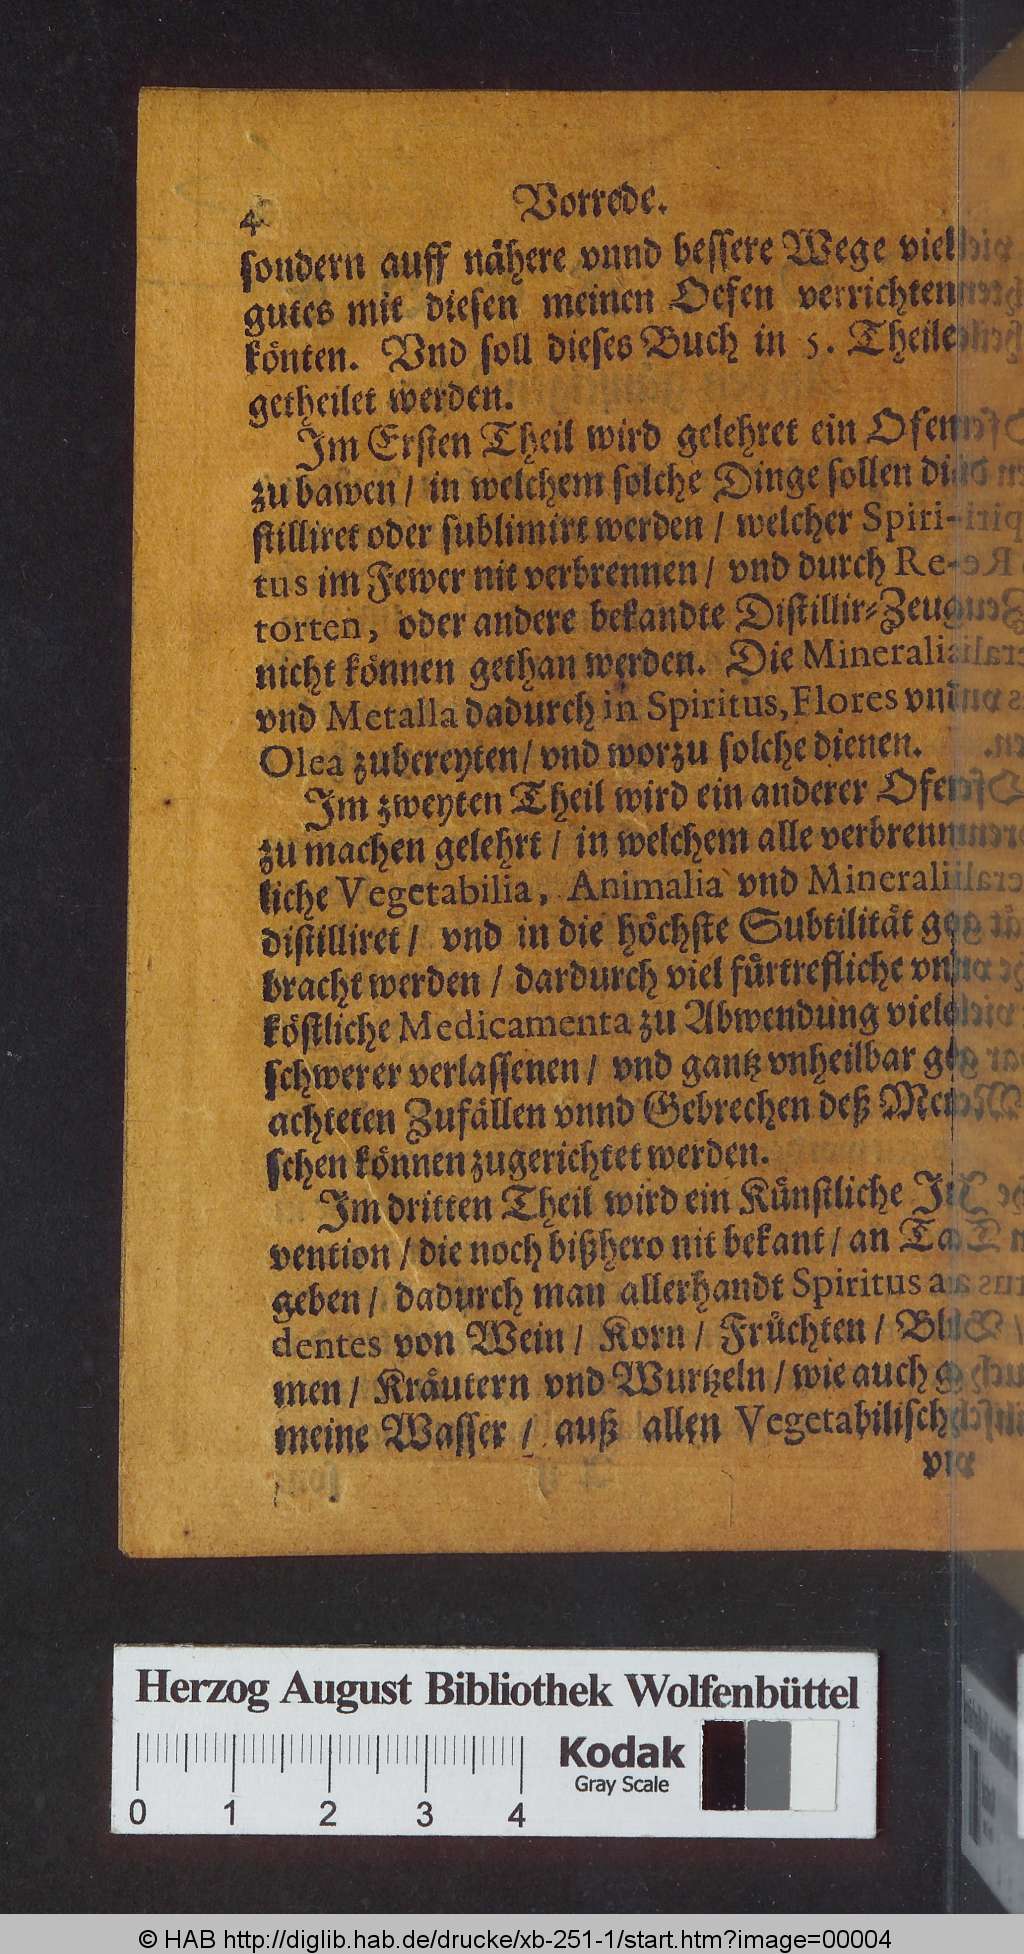 4
Vorrede.
sondern auff nähere vnnd bessere Wege viel
gutes mit diesen meinen Oefen verrichten
könten. Vnd soll dieses Buch in 5. Theile
getheilet werden.
Im Ersten Theil wird gelehret ein Ofen
zu bawen / in welchem solche Dinge sollen di-
stilliret oder sublimirt werden / welcher Spiri-
tus im Fewer nit verbrennen / vnd durch Re-
torten, oder andere bekandte Distillir-Zeug
nicht können gethan werden. Die Mineralia
vnd Metalla dadurch in Spiritus, Flores vnd
Olea zubereyten / vnd worzu solche dienen.
Im zweyten Theil wird ein anderer Ofen
zu machen gelehrt / in welchem alle verbrenn-
liche Vegetabilia, Animalia vnd Mineralia
distilliret / vnd in die höchste Subtilität ge-
bracht werden / dardurch viel fürtrefliche vnd
köstliche Medicamenta zu Abwendung vieler
schwerer verlassenen / vnd gantz vnheilbar ge-
achteten Zufällen vnnd Gebrechen deß Men-
schen können zugerichtet werden.
Im dritten Theil wird ein Künstliche In-
vention / die noch bißhero nit bekant / an Tag
geben / dadurch man allerhandt Spiritus ar-
dentes von Wein / Korn / Früchten / Blu-
men / Kräutern vnd Wurtzeln / wie auch ge-
meine Wasser / auß allen Vegetabilisch
Herzog August Bibliothek Wolfenbüttel
Kodak
Gray Scale
0 1 2 3 4
© HAB http://diglib.hab.de/drucke/xb-251-1/start.htm?image=00004